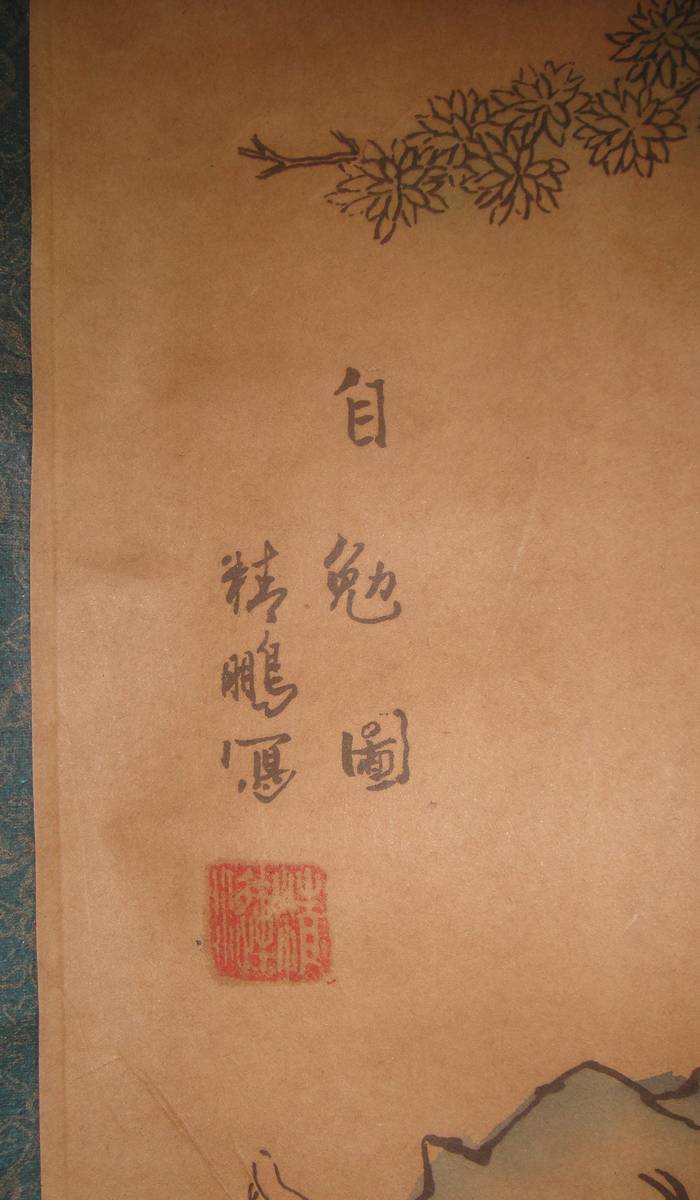 自勉圖
精鵬寫